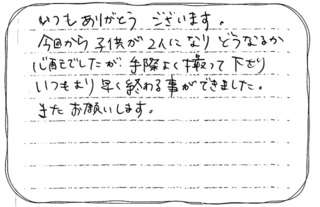 いつもありがとう ございます。
今回から子供が2人になり どうなるか
心配でしたが 手際よく撮って下さり
いつもより早く終わる事ができました。
またお願いします。